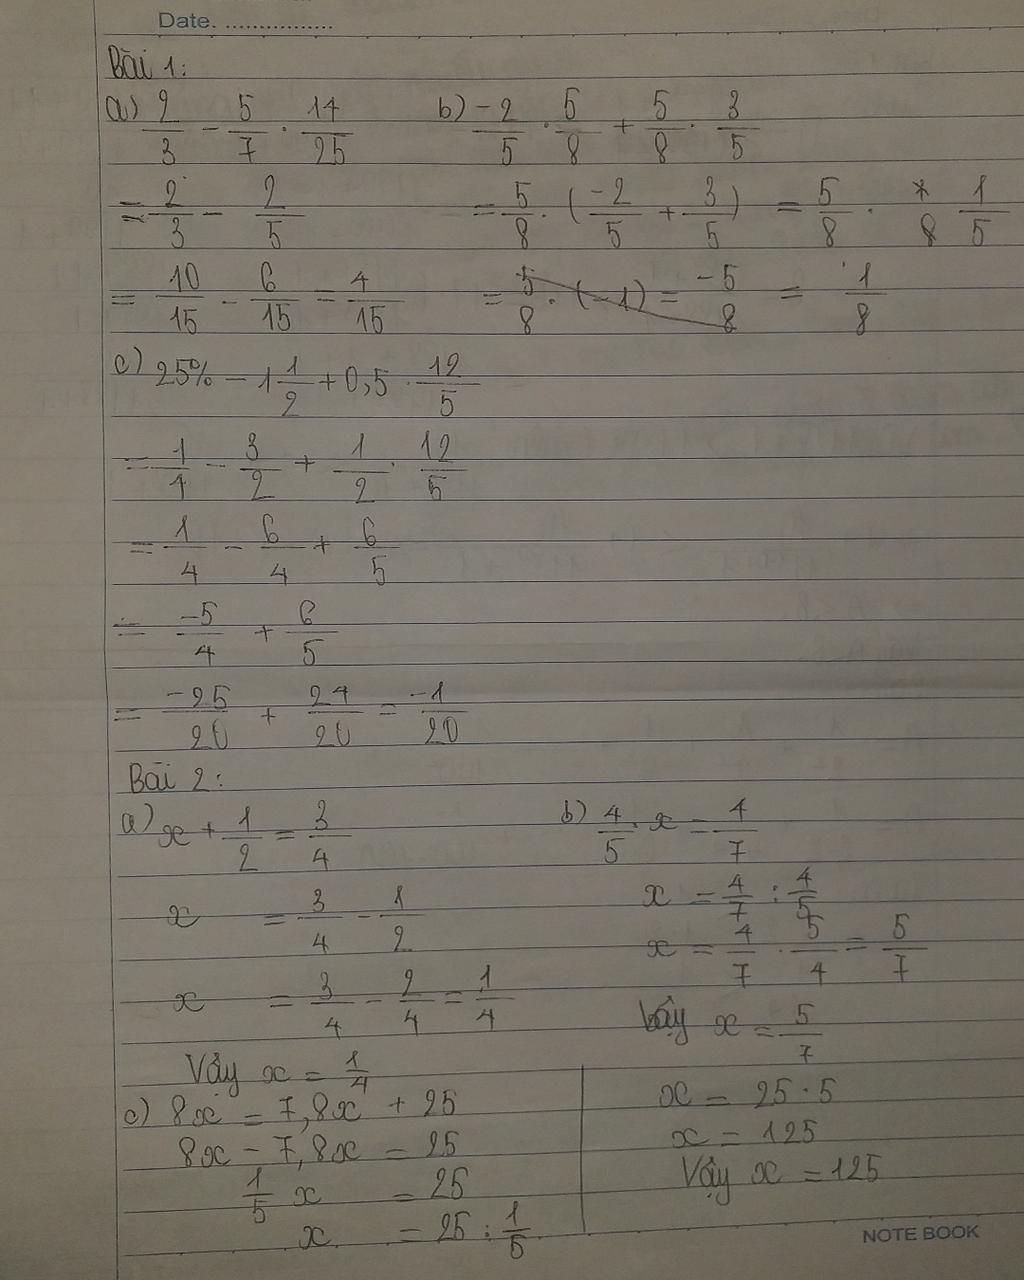 Date. ................
Bài 1:
a) 2/3 - 5/7 . 14/25
= 2/3 - 2/5
= 10/15 - 6/15 = 4/15
b) -2/5 . 5/8 + 5/8 . 3/5
= 5/8 . (-2/5 + 3/5) = 5/8 . 1/5
= 5/8 . (-1) = -5/8 = 1/8
c) 25% - 1 1/2 + 0,5 . 12/5
= 1/4 - 3/2 + 1/2 . 12/5
= 1/4 - 6/4 + 6/5
= -5/4 + 6/5
= -25/20 + 24/20 = -1/20
Bài 2:
a) x + 1/2 = 3/4
x = 3/4 - 1/2
x = 3/4 - 2/4 = 1/4
Vậy x = 1/4
b) 4/5 . x = 4/7
x = 4/7 : 4/5
x = 4/7 . 5/4 = 5/7
Vậy x = 5/7
c) 8x = 7,8x + 25
8x - 7,8x = 25
1/5 x = 25
x = 25 : 1/5
x = 25 . 5
x = 125
Vậy x = 125
NOTE BOOK